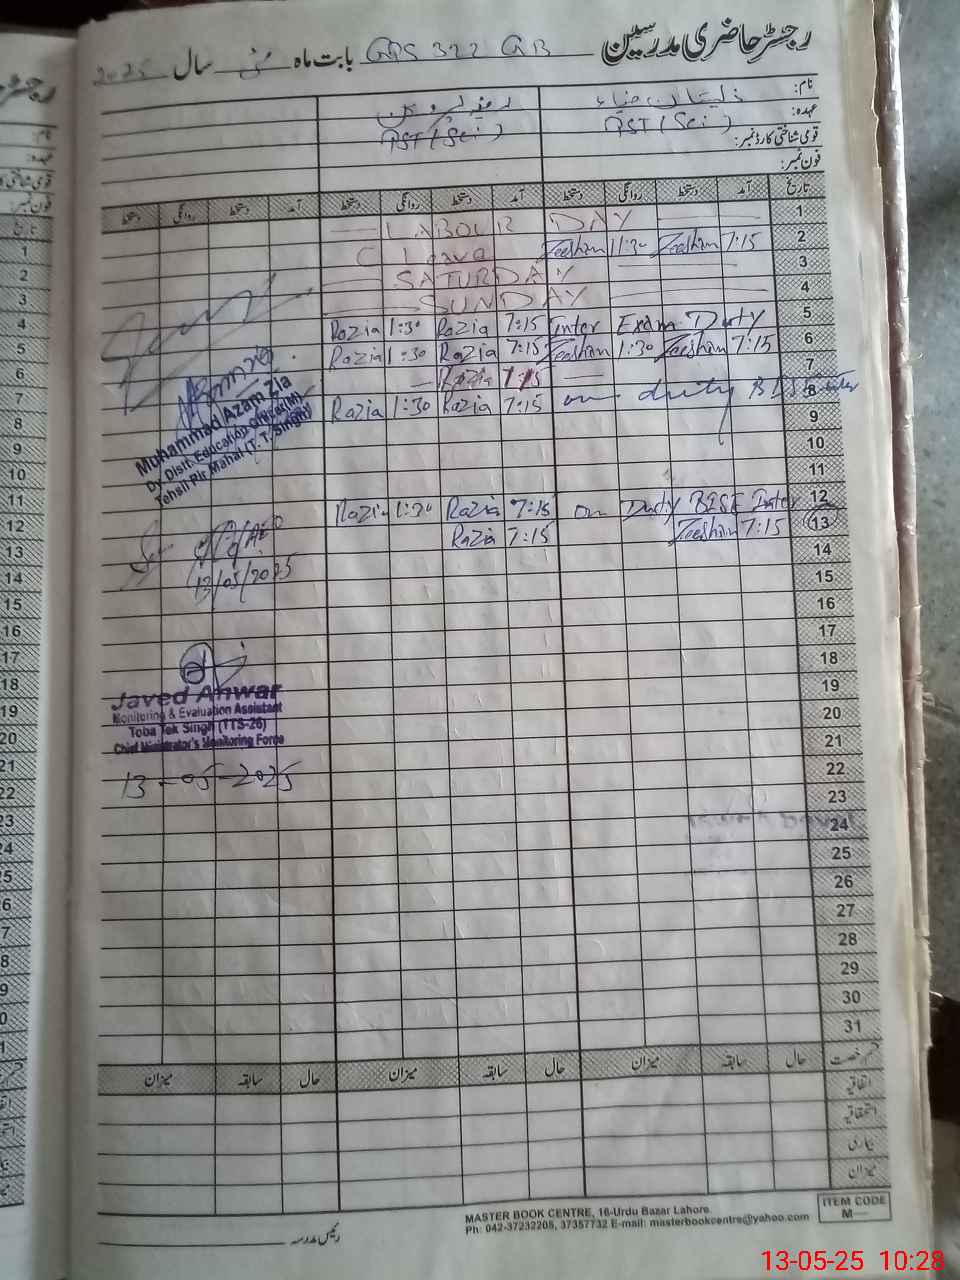 رجسٹر حاضری مدرسین GPS 322 GB بابت ماہ مئی سال 2025
نام:
عہدہ: PST (Sci) PST (Sci)
قومی شناختی کارڈ نمبر:
فون نمبر:
تاریخ آمد دستخط روانگی دستخط آمد دستخط روانگی دستخط آمد دستخط روانگی دستخط
1 LABOUR DAY
2 7:15 Zeeshan 11:30 Zeeshan C Leave
3 SATURDAY
4 SUNDAY
5 Inter Exam Duty 7:15 Razia 1:30 Razia
6 7:15 Zeeshan 1:30 Zeeshan 7:15 Razia 1:30 Razia
7 7:15 Razia
8 on duty BISE Inter 7:15 Razia 1:30 Razia
9
10
11
12 on Duty BISE Inter 7:15 Razia 1:30 Razia
13 7:15 Zeeshan 7:15 Razia
14
15
16
17
18
19
20
21
22
23
24
25
26
27
28
29
30
31
Muhammad Azam Zia
Dy. Distt. Education Officer (M)
Tehsil Pir Mahal (T. T. Singh)
13/05/2025
Javed Anwar
Monitoring & Evaluation Assistant
Toba Tek Singh (TTS-26)
Chief Minister's Monitoring Force
13-05-2025
قسم رخصت حال سابقہ میزان حال سابقہ میزان حال سابقہ میزان
اتفاقیہ
استحقاقیہ
بیماری
میزان
رئیس مدرسہ
MASTER BOOK CENTRE, 16-Urdu Bazar Lahore.
Ph: 042-37232205, 37357732 E-mail: masterbookcentre@yahoo.com
ITEM CODE
M—
13-05-25 10:28